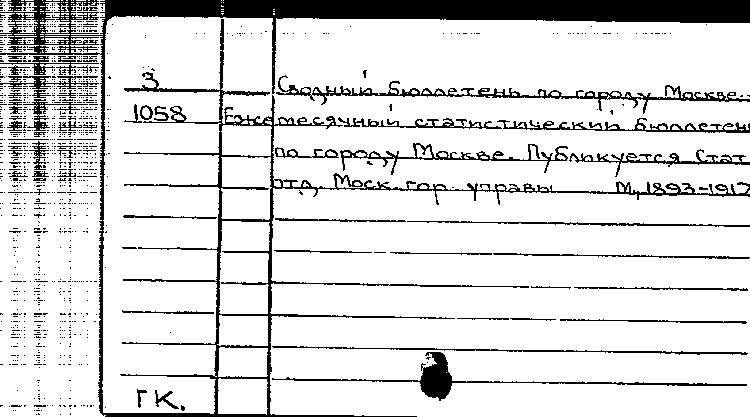 3
Сводный бюллетень по городу Москве.
1058 Ежемесячный статистический бюллетень
по городу Москве. Публикуется Стат.
отд. Моск. гор. управы М., 1893-1917
ГК.